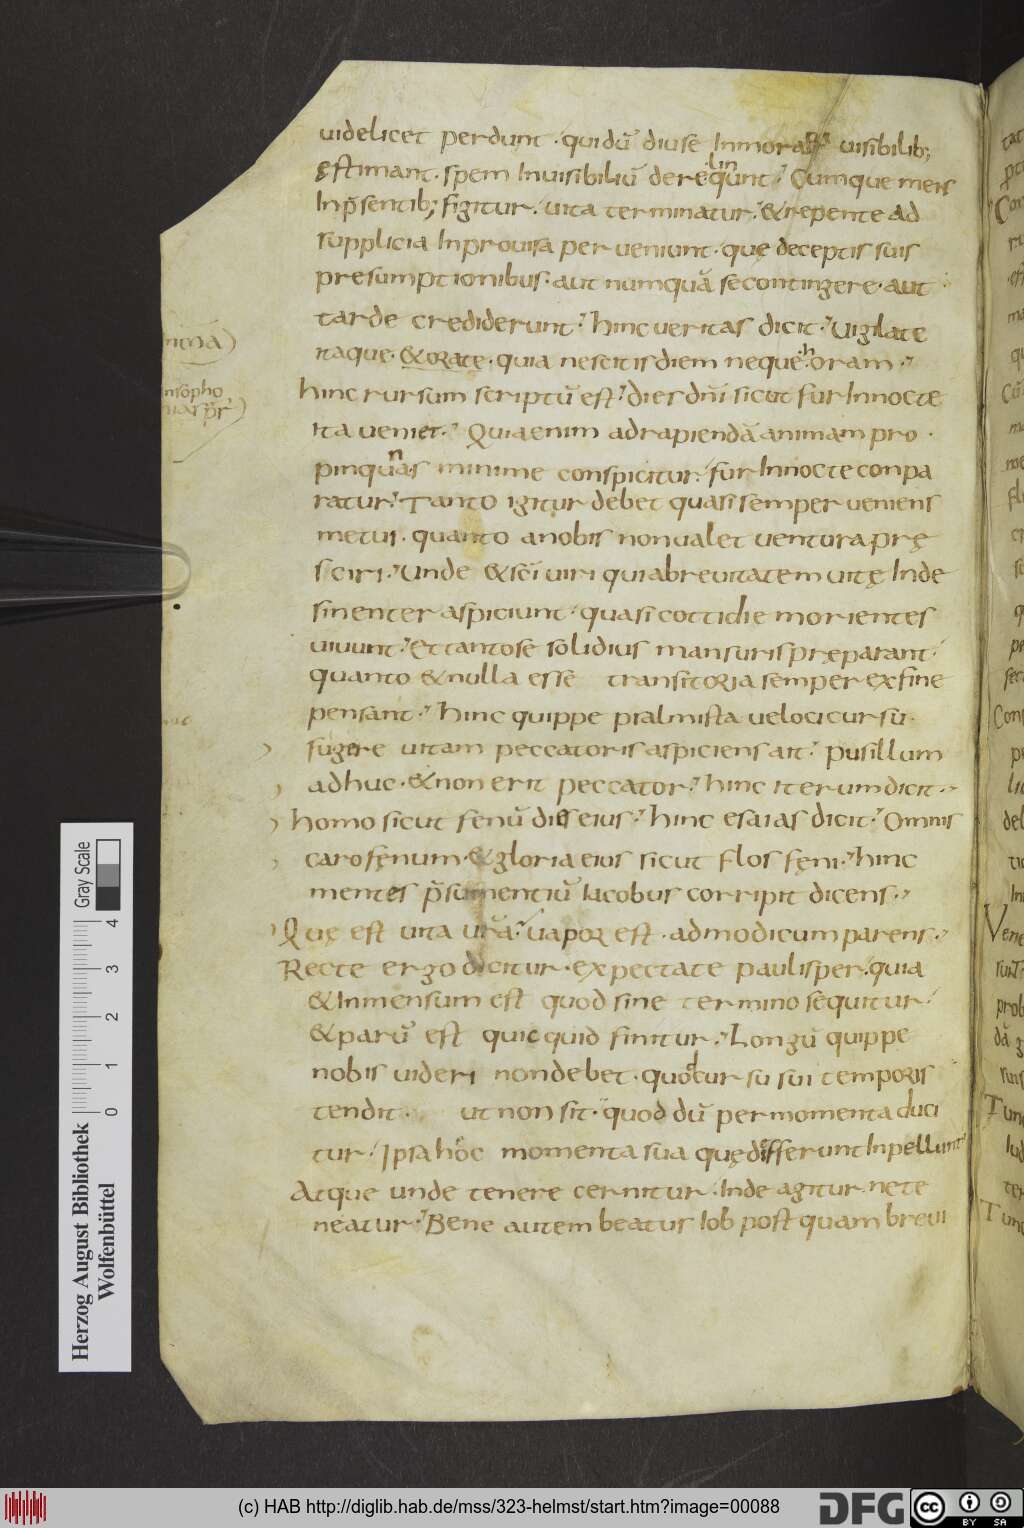 uidelicet perdunt · quidū diu se Inmorari uisibilib;
ęstimant · spem Inuisibiliū derelinqunt · Cumque mens
Inp̄sentib; figitur · uita terminatur · & repente ad
supplicia Inprouisa perueniunt · quę deceptis suis
presumptionibus · aut numquā se contingere · aut
tarde crediderunt · hinc ueritas dicit · Uigilate
itaque · & orate · quia nescitis diem neque horam ·
hinc rursum scriptū est · dies dn̄i sicut fur Innocte
ita ueniet · Quia enim ad rapiendā animam pro
pinquans minime conspicitur · fur Innocte conpa
ratur · Tanto igitur debet quasi semper ueniens
metui · quanto a nobis non ualet uentura prę
sciri · Unde & sc̄i uiri quia breuitatem uitę Inde
sinenter aspiciunt · quasi cottidie morientes
uiuunt · Et tanto se solidius mansuris pręparant ·
quanto & nulla esse transitoria semper ex fine
pensant · hinc quippe psalmista ueloci cursū
fugere uitam peccatoris aspiciens ait · pusillum
adhuc · & non erit peccator · hinc iterum dicit ·
homo sicut fenū dies eius · hinc esaias dicit · Omnis
caro fęnum · & gloria eius sicut flos fęni · hinc
mentes p̄sumentiū Iacobus corripit dicens ·
Quę est uita ur̄a · uapor est · ad modicum parens ·
Recte ergo dicitur · expectate paulisper · quia
& Inmensum est quod sine termino sequitur ·
& parū est quicquid finitur · Longū quippe
nobis uideri non debet · quod cursu sui temporis
tendit · ut non sit · quod dū per momenta duci
tur · Ipsa hoc momenta sua quę differunt Inpellunt
Atque unde tenere cernitur · Inde agitur ne te
neatur · Bene autem beatus Iob post quam breui
Herzog August Bibliothek
Wolfenbüttel
0 1 2 3 4
Gray Scale
(c) HAB http://diglib.hab.de/mss/323-helmst/start.htm?image=00088
DFG
cc BY SA